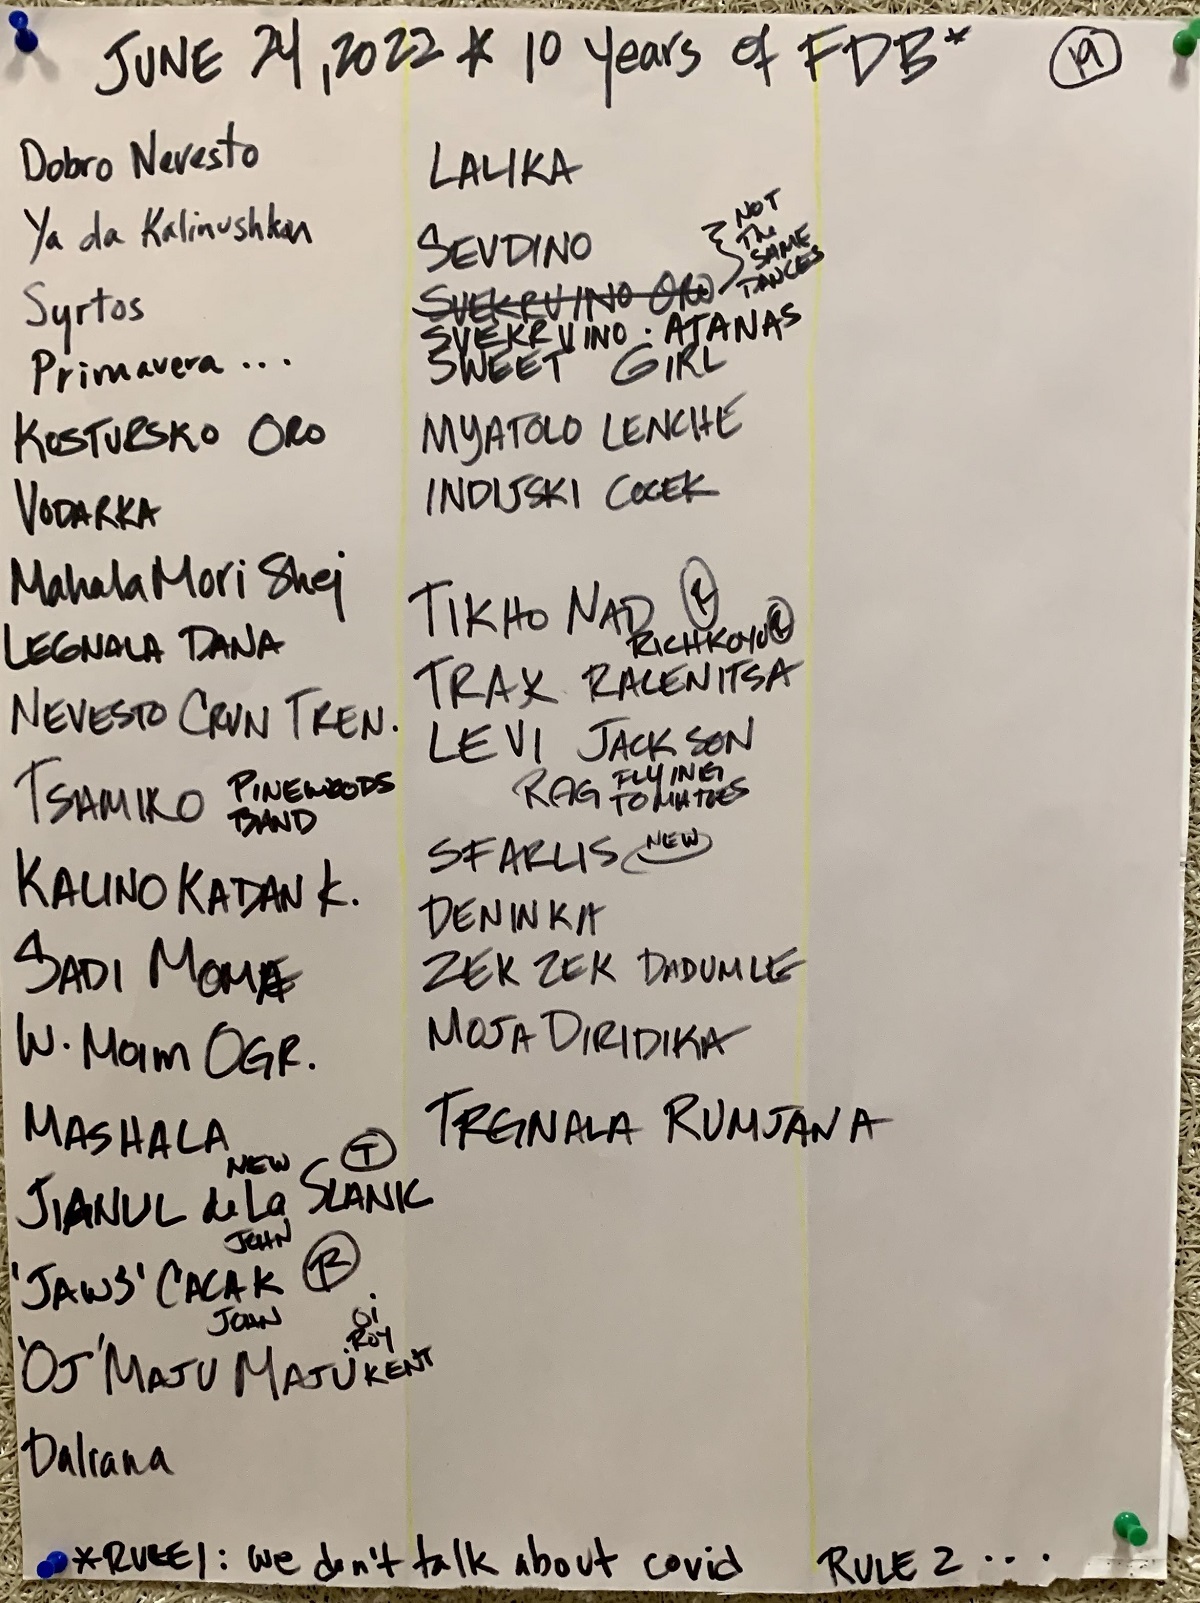 JUNE 24, 2022 * 10 Years of FDB* 19
Dobro Nevesto
Ya da Kalinushkan
Syrtos
Primavera ...
KOSTURSKO ORO
VODARKA
Mahala Mori Shej
LEGNALA DANA
NEVESTO CRVN TREN.
TSAMIKO PINEWOODS
BAND
KALINO KADAN K.
SADI MOMA
W. Moim OGR.
MASHALA
NEW T
JIANUL de La SLANIC
JOHN
'JAWS' CACAK R
JOHN
'OJ' MAJU MAJU Oi
ROY
KENT
Dalrana
LALIKA
SEVDINO
SVEKRVINO ORO
NOT
The
SAME
DANCES
SVEKRVINO · ATANAS
SWEET GIRL
MYATOLO LENCHE
INDIJSKI COCEK
TIKHO NAD L
RICHKOYU L
TRAK RACENITSA
LEVI JACKSON
RAG FLYING
TOMATOES
SFARLIS NEW
DENINKA
ZEK ZEK DADUMLE
MOJA DIRIDIKA
TRGNALA RUMJANA
*RULE 1: We don't talk about covid RULE 2 ....